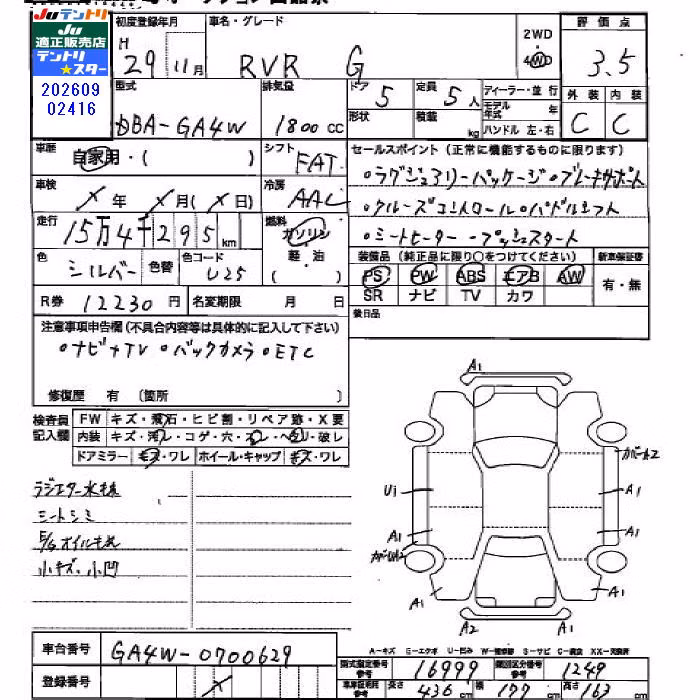 JUテントリ
JU
適正販売店
テントリ
★スター
202609
02416
初度登録年月 車名・グレード
H 29 11月 RVR G
2WD
4WD
評価点
3.5
型式 DBA-GA4W
排気量 1800 CC
ドア 5 定員 5人
形状 積載 kg
ディーラー・並行
モデル年式 年
ハンドル 左・右
外装 内装
C C
車歴 自家用・( )
シフト FAT
車検 X年 X月(X日)
冷房 AAC
セールスポイント(正常に機能するものに限ります)
・ラグジュアリーパッケージ・ブレーキサポート
・クルーズコントロール・パドルシフト
・シートヒーター・プッシュスタート
走行 15万4千295km
燃料 ガソリン
軽・油
( )
色 シルバー 色替 色コード U25
装備品(純正品に限り〇をつけてください) 新車保証書
PS PW ABS エアB AW
SR ナビ TV カワ
有・無
R券 12230円 名変期限 月 日
後日品
注意事項申告欄(不具合内容等は具体的に記入して下さい)
・ナビ+TV ・バックカメラ・ETC
修復歴 有 (箇所 )
検査員
記入欄
FW キズ・飛石・ヒビ割・リペア跡・X要
内装 キズ・汚レ・コゲ・穴・スレ・ヘコリ・破レ
ドアミラー キズ・ワレ ホイール・キャップ キズ・ワレ
シートシミ
小キズ、小凹
A1
U1
A1
A1
A1
A1
A1
A2
A1
車台番号 GA4W-0700629
登録番号
A-キズ E-エクボ U-凹み W-補修跡 S-サビ C-腐食 XX-交換済
型式指定番号 参考 16999 類別区分番号 参考 1249
車庫証明用 参考 長さ 436cm 幅 177cm 高さ 163cm